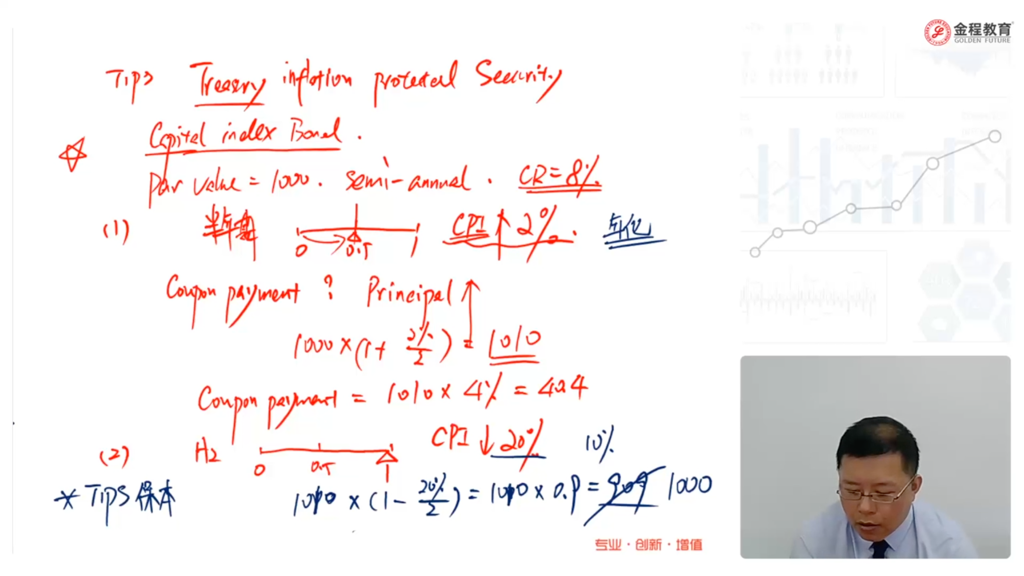 金程教育
GOLDEN FUTURE
Tips Treasury inflation protected Security
Capital index Bond.
par value = 1000. semi-annual. CR = 8%
(1) 0 0.5 1 CPI ↑ 2%. 年化
Coupon payment ? Principal ↑
1000 × (1 + 2%/2) = 1010
Coupon payment = 1010 × 4% = 40.4
(2) H2 0 0.5 1 CPI ↓ 20% 10%
* TIPS 保本 1010 × (1 - 20%/2) = 1010 × 0.9 = 909 1000
专业·创新·增值